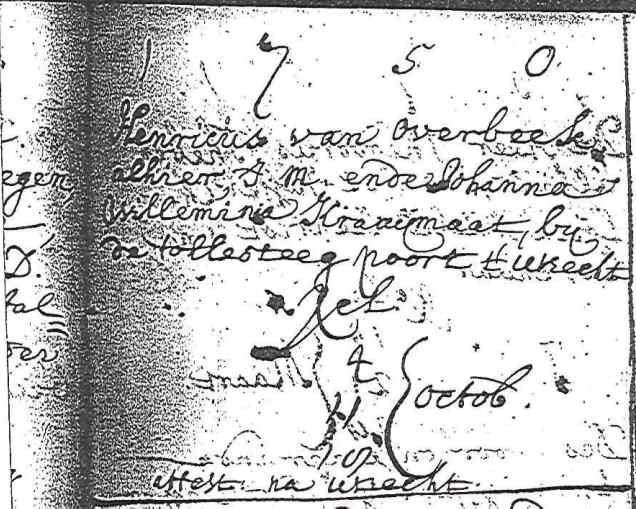 1 7 5 0
Henricus van Overbeek
alhier, J. m. ende Johanna
Willemina Kraaijmaat, bij
de tollesteeg poort t utrecht
4
11 octob.
18
attest. na utrecht.